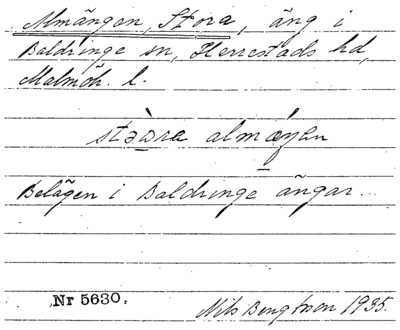 Almängen, Stora, äng i
Baldringe sn, Herrestads hd,
Malmöh. l.
Belägen i Baldringe ängar.
Nr 5630.
Nils Bengtsson 1935.